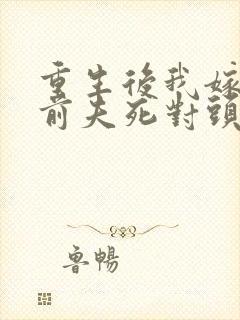 重生後我嫁
前夫死對頭
魯暢